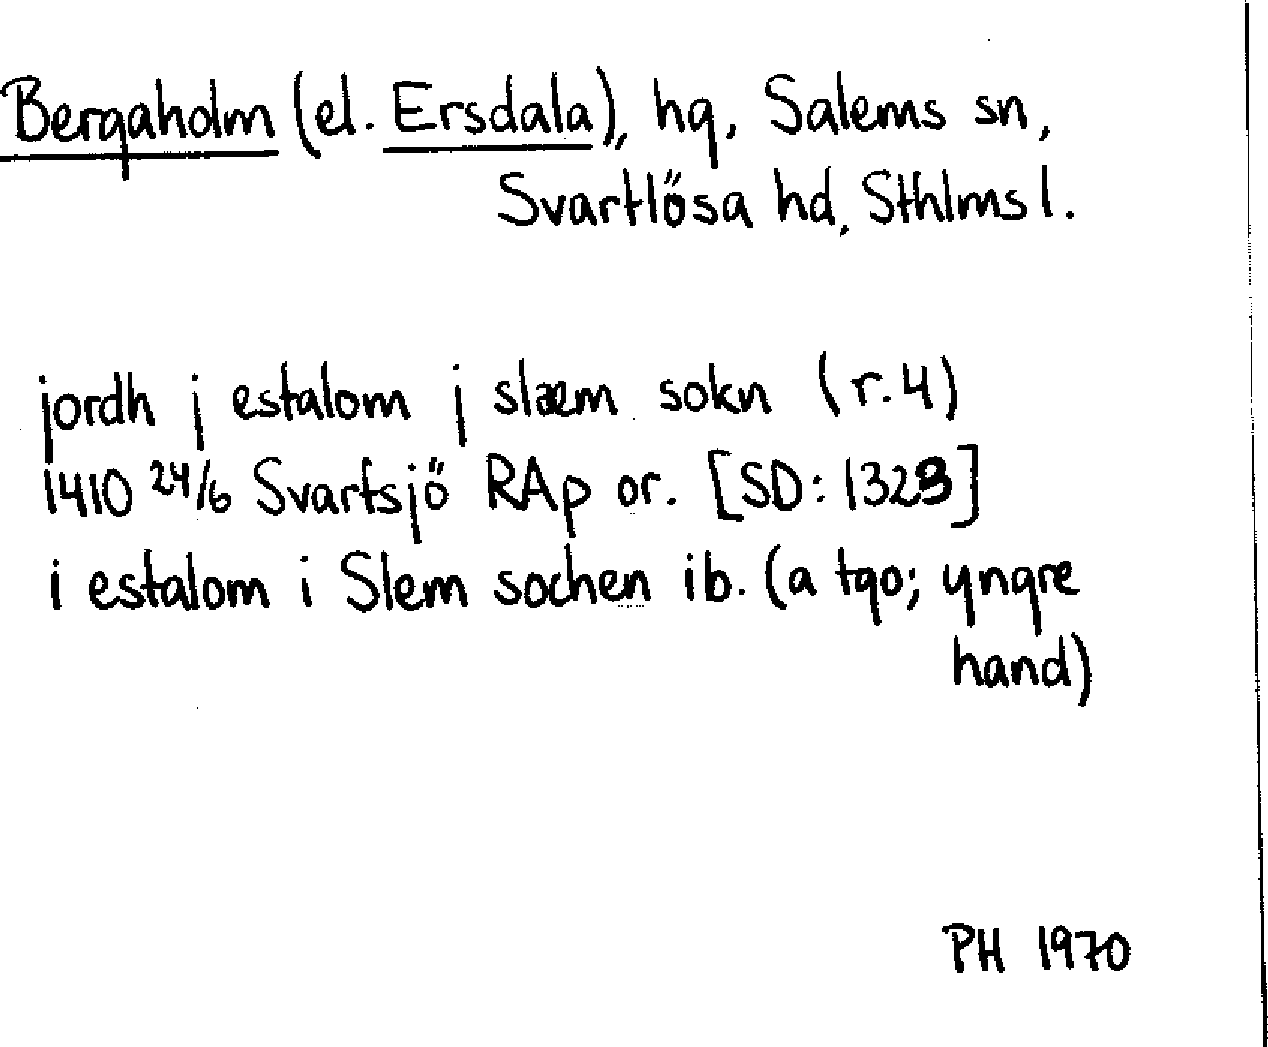 Bergaholm (el. Ersdala), hg, Salems sn,
Svartlösa hd, Sthlms l.
jordh j estalom j slæm sokn (r.4)
1410 24/6 Svartsjö RAp or. [SD: 1323]
i estalom i Slem sochen ib. (a tgo; yngre
hand)
PH 1970